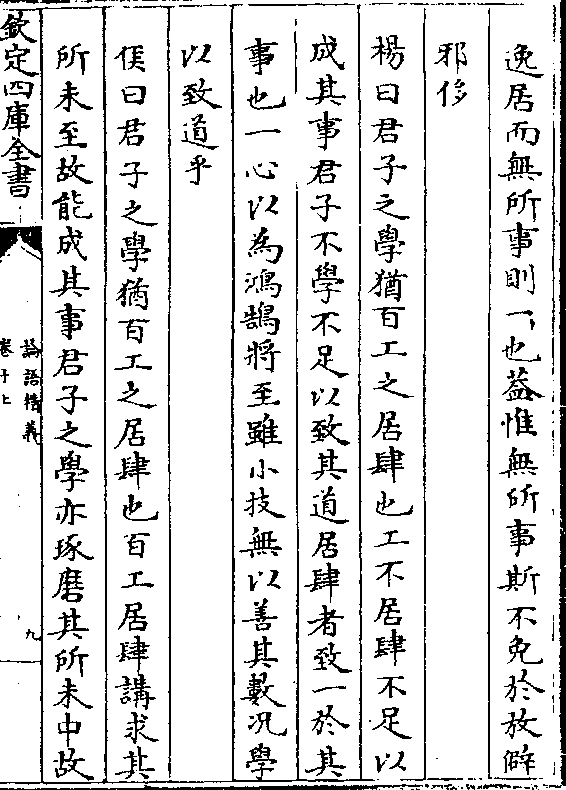 逸居而無所事則一也葢惟無所事斯不免於放僻
邪侈
楊曰君子之學猶百工之居肆也工不居肆不足以
成其事君子不學不足以致其道居肆者致一於其
事也一心以為鴻鵠將至雖小技無以善其數况學
以致道乎
侯曰君子之學猶百工之居肆也百工居肆講求其
所未至故能成其事君子之學亦琢磨其所未中故
欽定四庫全書
論語精義
卷十上
九